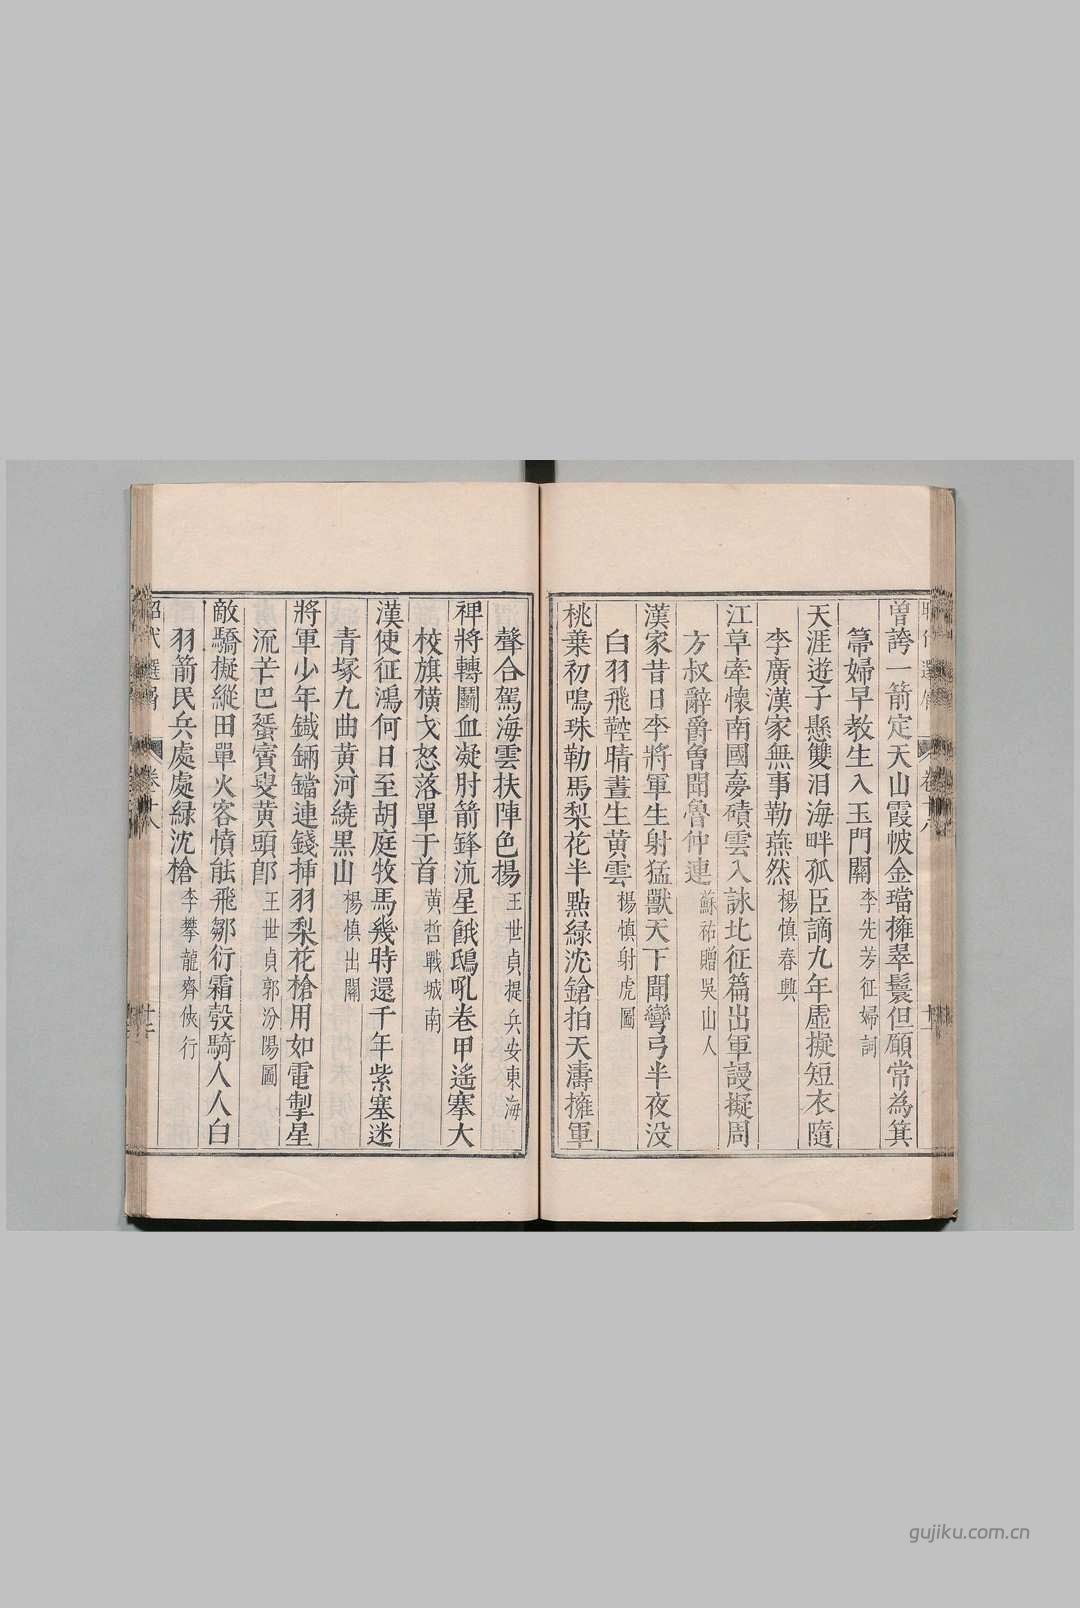 曽誇一箭定天山霞帔金璫擁翠鬟但願常為箕
箒婦早教生入玉門關李先芳征婦詞
天涯遊子懸雙泪海畔孤臣謫九年虛擬短衣隨
李廣漢家無事勒燕然楊慎春興
江草牽懷南國夢磧雲入詠北征篇出軍謾擬周
方叔辭爵魯聞魯仲連蘇祐贈吳山人
漢家昔日李將軍生射猛獸天下聞彎弓半夜没
白羽飛鞚晴晝生黃雲楊慎射虎圖
桃葉初鳴珠勒馬梨花半點緑沈鎗拍天濤擁軍
聲合駕海雲扶陣色楊王世貞提兵安東海
裨將轉鬭血凝肘箭鋒流星餓鴟吼卷甲遙搴大
校旗横戈怒落單于首黄哲戰城南
漢使征鴻何日至胡庭牧馬幾時還千年紫塞迷
青塚九曲黄河繞黑山楊慎出關
將軍少年鐵鎘鐺連錢揷羽梨花槍用如電掣星
流芒巴賨賨叟黄頭郎王世貞郭汾陽圖
敵驕擬縱田單火客憤能飛鄒衍霜彀騎人人白
羽箭民兵處處緑沈槍李攀龍齊俠行
昭代選屑
卷十八